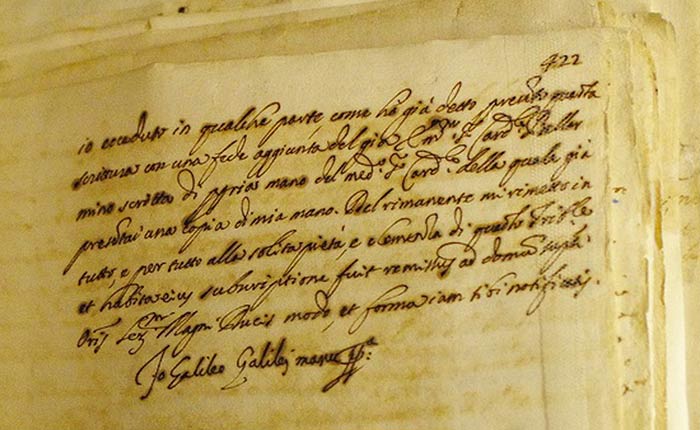 422
io ecceduto in qualche parte, come ho già detto presento questa
scrittura con una fede aggiunta del già Em.mo s.r Card.le Bellar
mino scritta di propria mano del med.o s.r Card.le della quale già
presentai una copia di mia mano. Del rimanente mi rimetto in
tutto, e per tutto alla solita pietà, e clemenza di questo Trib.le
et habita eius subscriptione fuit remissus ad domum supl.i
Oris Ser.mi Magni Ducis modo, et forma iam sibi notificatis.
Io Galileo Galilei manu pp.a